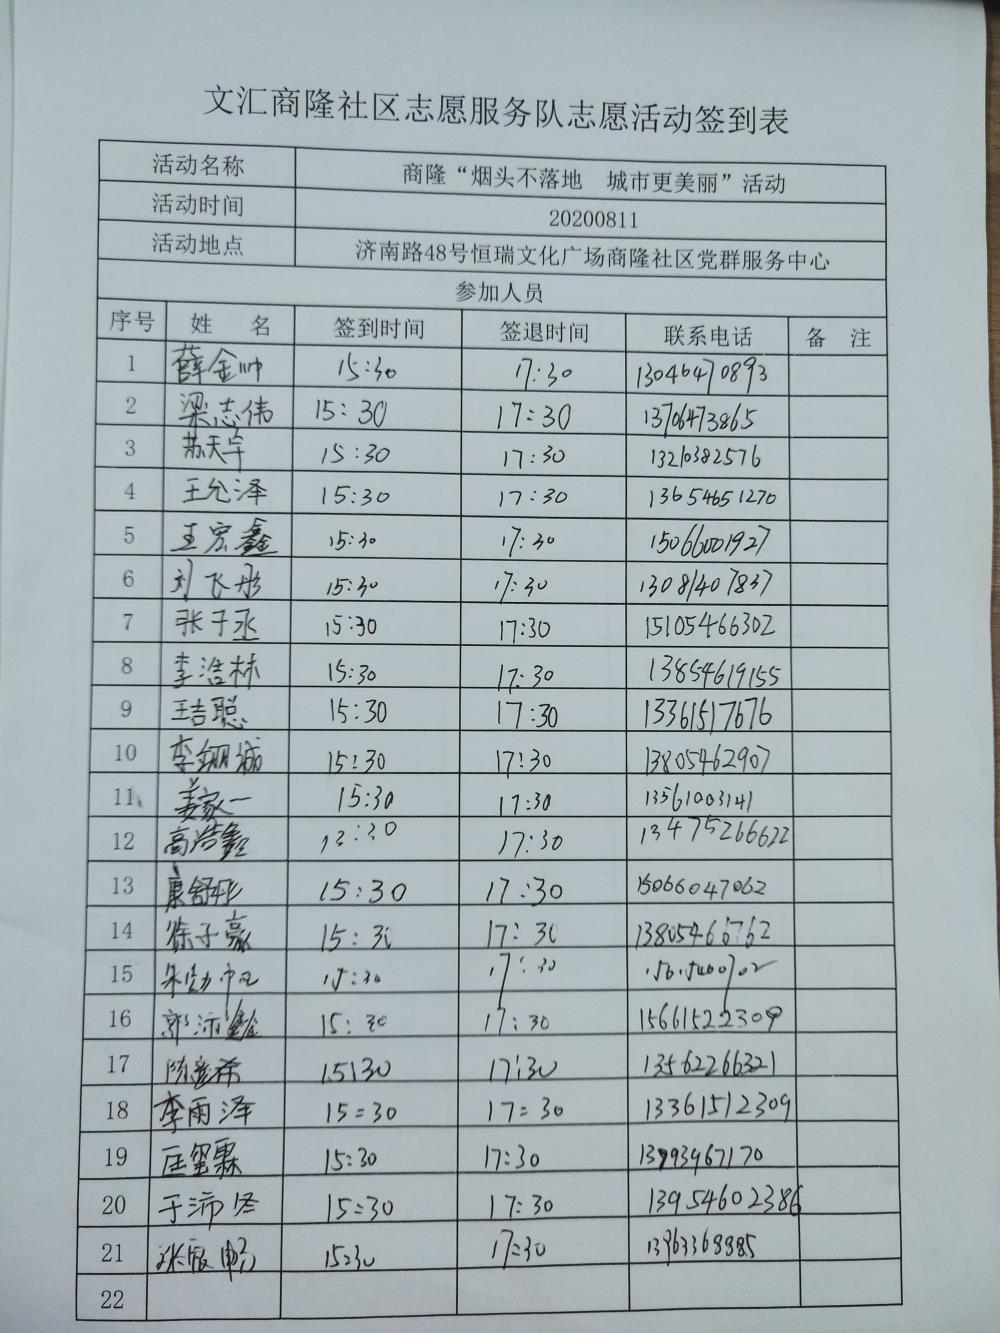 文汇商隆社区志愿服务队志愿活动签到表
活动名称 商隆“烟头不落地 城市更美丽”活动
活动时间 20200811
活动地点 济南路48号恒瑞文化广场商隆社区党群服务中心
参加人员
序号 姓 名 签到时间 签退时间 联系电话 备 注
1 薛金帅 15:30 17:30 13046470893
2 梁志伟 15:30 17:30 13706473865
3 苏天宇 15:30 17:30 13210382576
4 王允泽 15:30 17:30 13654651270
5 王宏鑫 15:30 17:30 15066001927
6 刘飞彤 15:30 17:30 13081407837
7 张子丞 15:30 17:30 15105466302
8 李浩林 15:30 17:30 13854619155
9 王吉聪 15:30 17:30 13361517676
10 李翊诚 15:30 17:30 13805462907
11 姜家一 15:30 17:30 13561003141
12 高浩鑫 17:30 13475266622
13 康舒彤 15:30 17:30 15066047062
14 徐子豪 15:30 17:30 13805466762
15 15:30 17:30
16 郭沛鑫 15:30 17:30 15661522309
17 15:30 17:30 13562266321
18 李雨泽 15=30 17=30 13361512309
19 匡玺霖 15:30 17:30
20 于沛 15=30 17:30 13954602386
21 15=30 17=30 13963368885
22